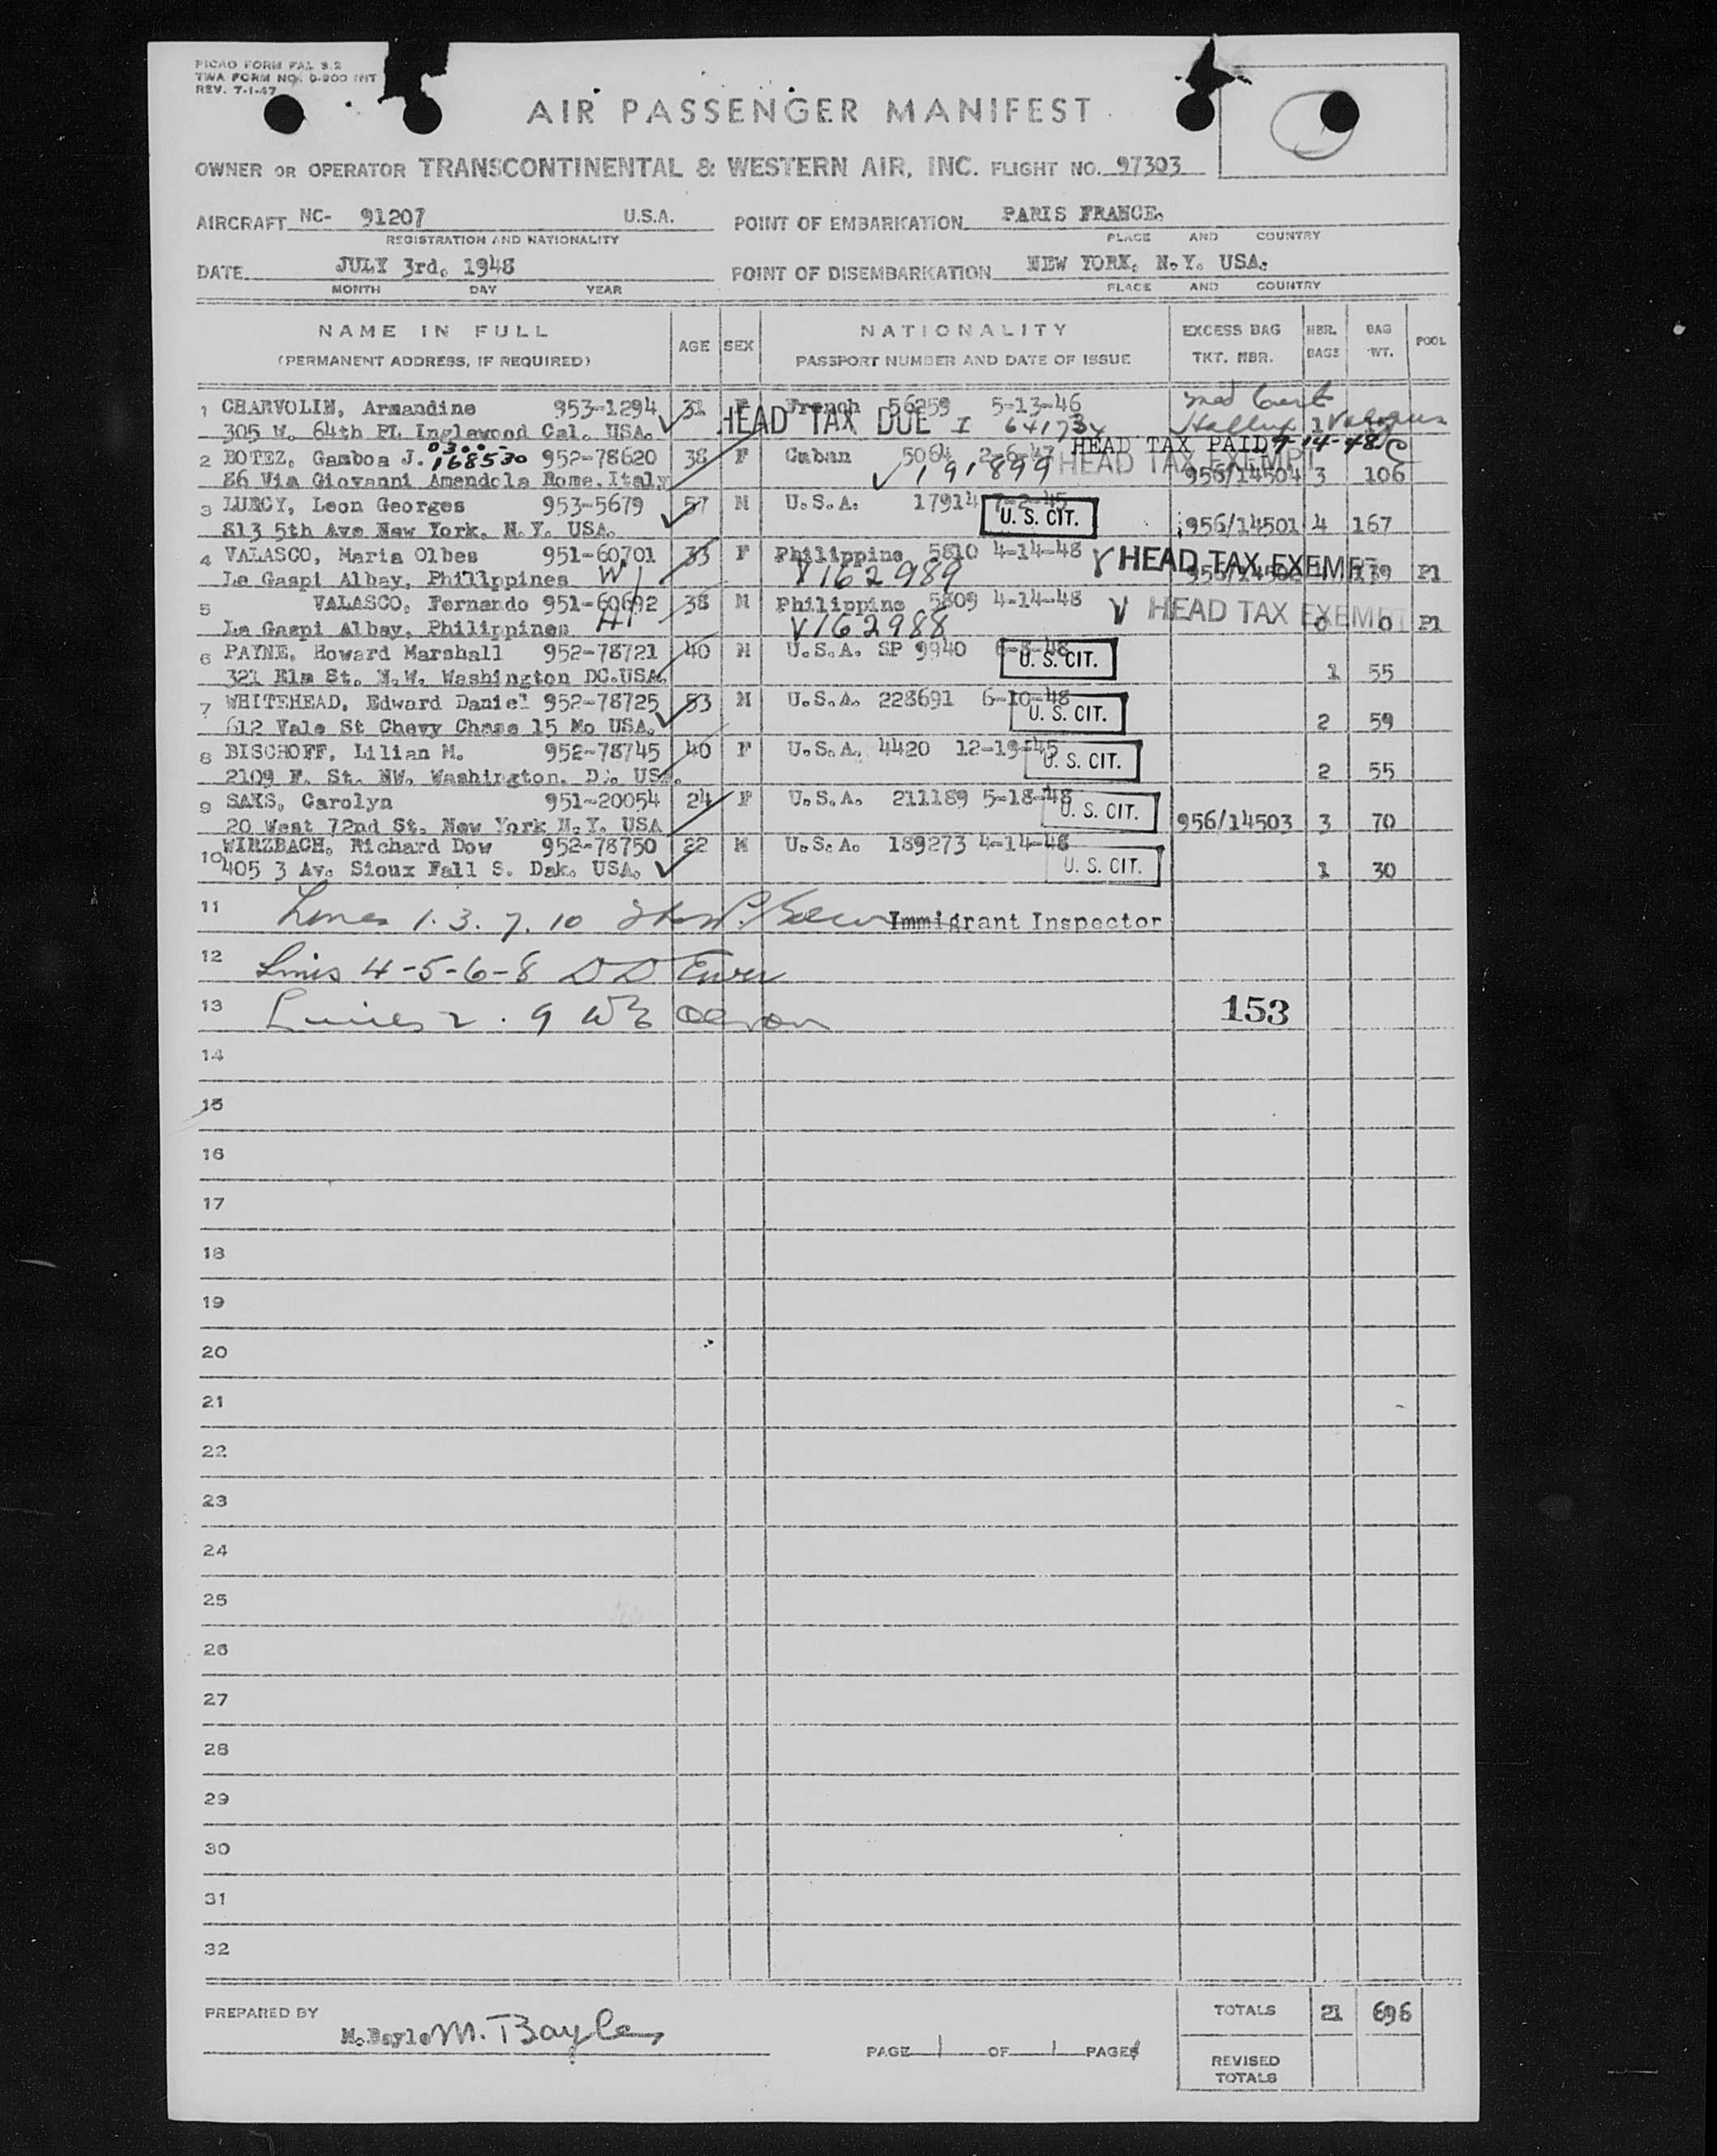 PICAO FORM PAL S.2
TWA FORM NO. O-900 INT
REV. 7-1-47
AIR PASSENGER MANIFEST
OWNER OR OPERATOR TRANSCONTINENTAL & WESTERN AIR, INC. FLIGHT NO. 97303
AIRCRAFT NC- 91207 U.S.A. POINT OF EMBARKATION PARIS FRANCE.
REGISTRATION AND NATIONALITY PLACE AND COUNTRY
DATE JULY 3rd. 1948 POINT OF DISEMBARKATION NEW YORK, N.Y. USA.
MONTH DAY YEAR PLACE AND COUNTRY
NAME IN FULL AGE SEX NATIONALITY EXCESS BAG NBR. BAG POOL
(PERMANENT ADDRESS, IF REQUIRED) PASSPORT NUMBER AND DATE OF ISSUE TKT. NBR. BAGS WT.
1 CHARVOLIN, Armandine 953-1294 31 F French 56259 5-13-46 Med Cert
305 W. 64th Pl. Inglewood Cal. USA. HEAD TAX DUE I Hallux Valgus 1
2 BOTEZ, Gamboa J. 0300-168530 952-78620 38 F Cuban 5064 2-6-47 HEAD TAX PAID 9-14-48
86 Via Giovanni Amendola Rome, Italy V 191899 HEAD TAX EXEMPT 956/14504 3 106
3 LURCY, Leon Georges 953-5679 57 M U.S.A. 17914 7-2-45
813 5th Ave New York, N.Y. USA. U. S. CIT. 956/14501 4 167
4 VALASCO, Maria Olbes 951-60701 33 F Philippine 5810 4-14-48 V HEAD TAX EXEMPT
Le Gaspi Albay, Philippines W V162989 P1
5 VALASCO, Fernando 951-60692 38 M Philippine 5809 4-14-48 V HEAD TAX EXEMPT
Le Gaspi Albay, Philippines H V162988 0 0 P1
6 PAYNE, Howard Marshall 952-78721 40 M U.S.A. SP 9940 6-8-48
321 Elm St. N.W. Washington DC.USA. U. S. CIT. 1 55
7 WHITEHEAD, Edward Daniel 952-78725 53 M U.S.A. 228691 6-10-48
612 Vale St Chevy Chase 15 Mo USA. U. S. CIT. 2 59
8 BISCHOFF, Lilian M. 952-78745 40 F U.S.A. 4420 12-19-45
2109 F. St. NW. Washington, D.C. USA. U. S. CIT. 2 55
9 SAKS, Carolyn 951-20054 24 F U.S.A. 211189 5-18-48
20 West 72nd St. New York N.Y. USA U. S. CIT. 956/14503 3 70
10 WIRZBACH, Richard Dow 952-78750 22 M U.S.A. 189273 4-14-48
405 3 Av. Sioux Fall S. Dak. USA. U. S. CIT. 1 30
11 Lines 1. 3. 7. 10 Immigrant Inspector
12 Lines 4-5-6-8 D D
13 Lines 2 . 9 153
14
15
16
17
18
19
20
21
22
23
24
25
26
27
28
29
30
31
32
PREPARED BY M.Bayle M. Bayles TOTALS 21 696
PAGE 1 OF 1 PAGES
REVISED
TOTALS